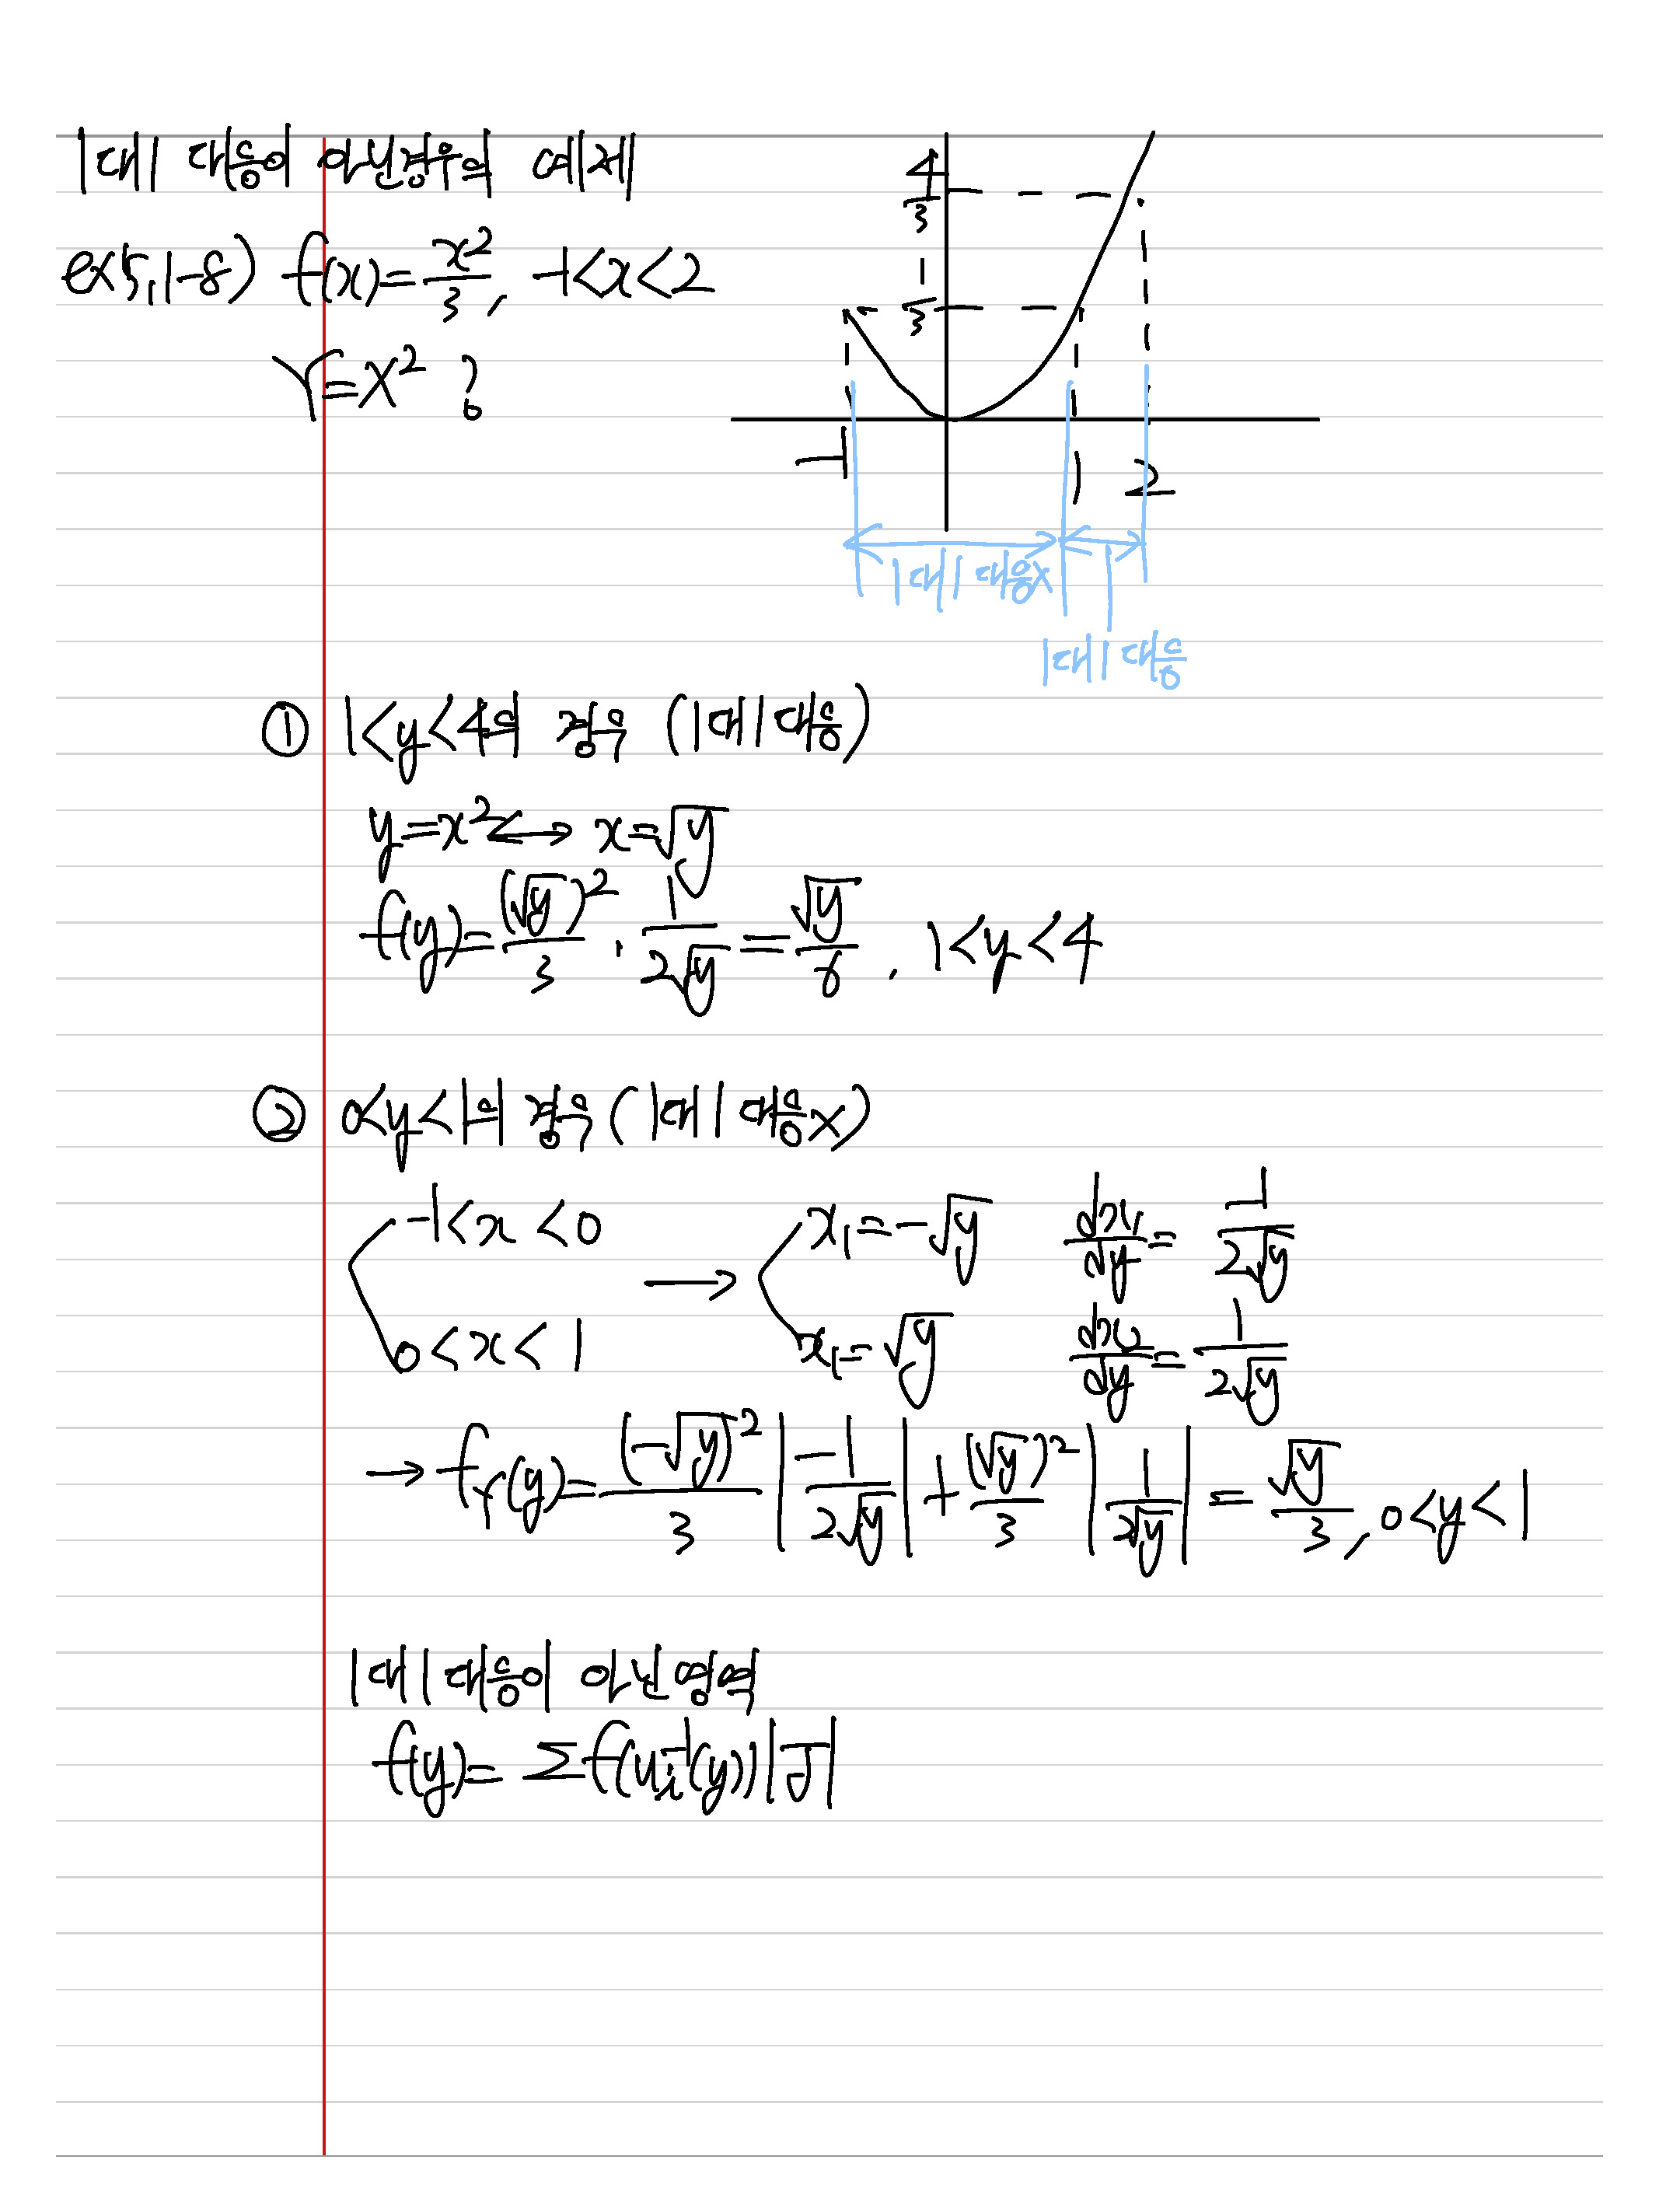 1대1 대응이 아닌경우의 예제
ex(5.1-8) f(x)=x²/3, -1<x<2
Y=X² ?
4/3
1/3
-1 1 2
1대1 대응x
1대1 대응
① 1<y<4의 경우 (1대1대응)
y=x² ↔ x=√y
f(y)=(√y)²/3 · 1/2√y = √y/6, 1<y<4
② 0<y<1의 경우 (1대1 대응x)
-1<x<0 → x₁=-√y dx₁/dy = -1/2√y
0<x<1 x₁=√y dx₂/dy = 1/2√y
→ f_Y(y)=(-√y)²/3 |-1/2√y| + (√y)²/3 |1/2√y| = √y/3, 0<y<1
1대1대응이 아닌영역
f(y)= Σf(u_i⁻¹(y))|J|